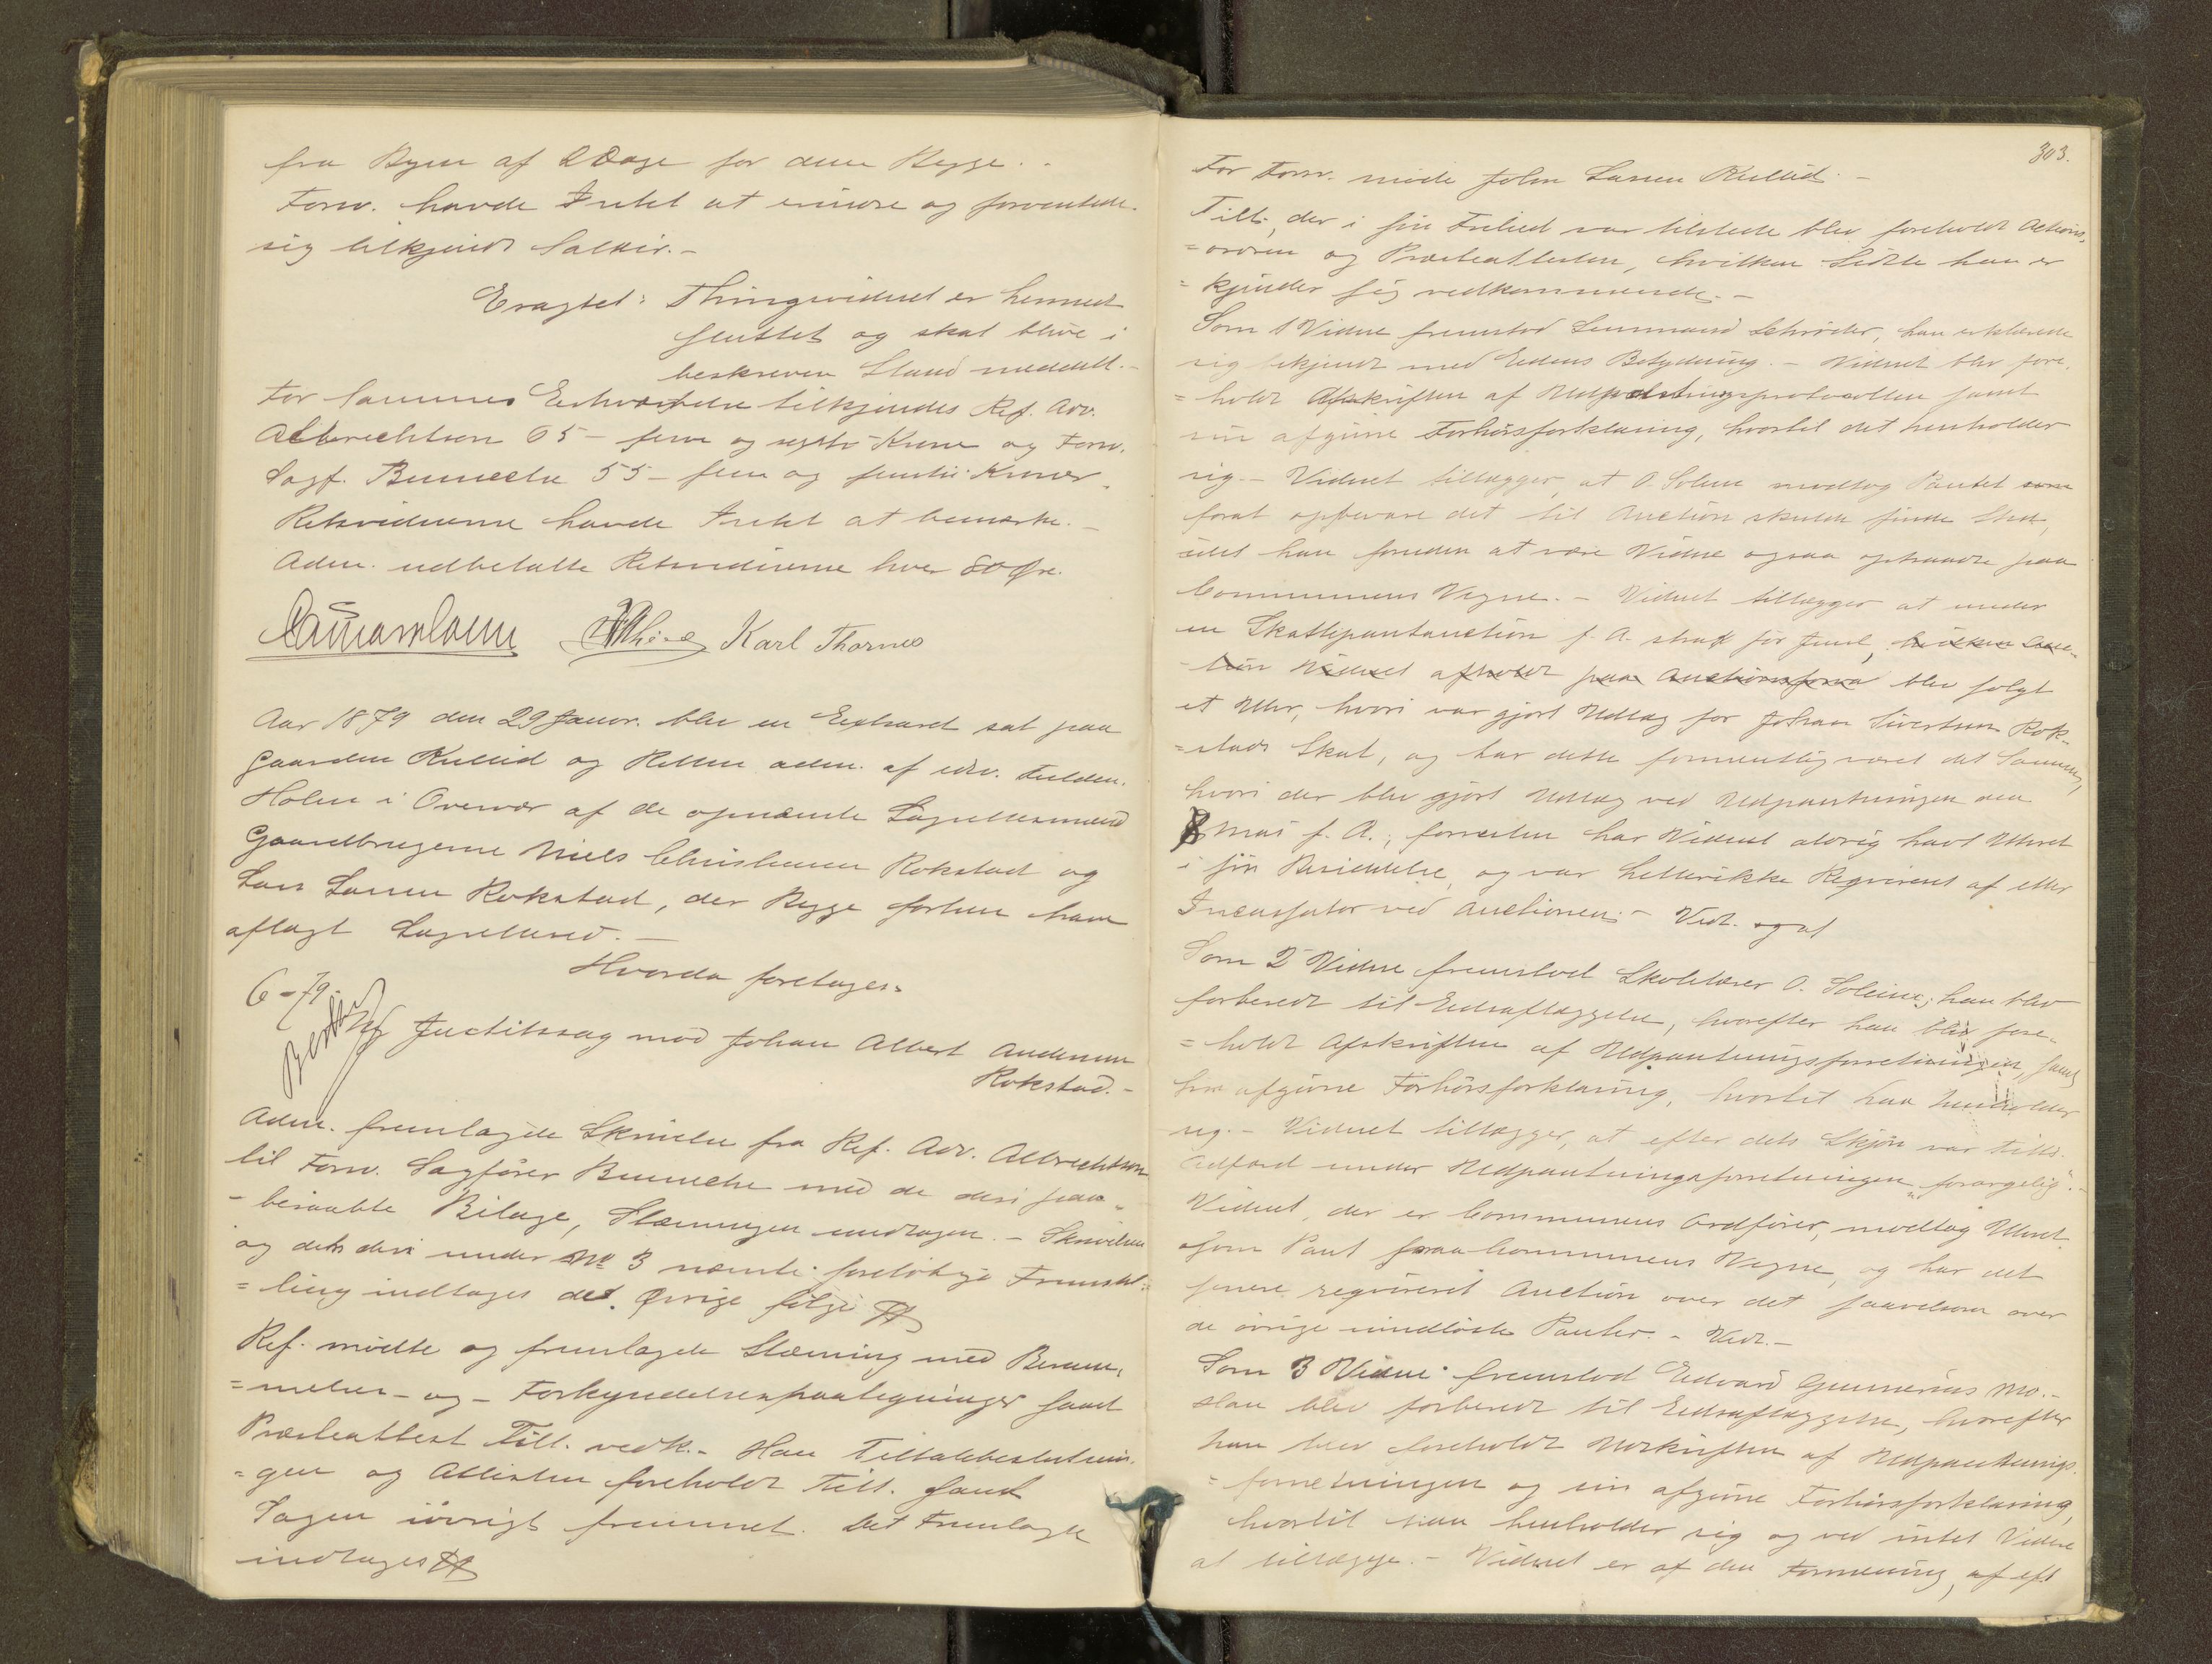 fra Byen af 2 Dage for dem Begge. -
Forsv. havde Intet at erindre og forventede
sig tilkjendt Salair. -
Eragtet: Thingsvidnet er hermed
sluttet og skal blive i
beskreven Stand meddelt. -
For Sammes Erhvervelse tilkjendes Ref. Adv.
Albrechtson 65 - fem og sexti - Kroner og Forsv.
Sagf. Benneche 55 - fem og femti - Kroner.
Retsvidnerne havde Intet at bemærke. -
Adm. udbetalte Retsvidnerne hver 80 Øre.
Karl Thornes
Aar 1879 den 29 Januar. blev en Extraret sat paa
Gaarden Kullid og Retten adm. af edsv. Fuldm.
Holm i Overvær af de opnævnte Lagrettesmænd
Gaardbrugerne Niels Christensen Rokstad og
Lars Larsen Rokstad, der Begge forhen have
aflagt Lagretteed. -
Hvorda foretages:
6 - 79.
Justitssag mod Johan Albert Andersen
Rokstad. -
Adm. fremlagde Skrivelse fra Ref. Adv. Albrechtson
til Forsv. Sagfører Benneche med de deri paa-
- beraabte Bilage, Stævningen undtagen. - Skrivelsen
og dets deri under No 3 nævnte foreløbige Fremstil-
= ling indtages det Øvrige følge
Ref. mødte og fremlagde Stævning med Beram-
= melses - og - Forkyndelsespaategninger samt
Præsteattest Tilt. vedk. - Han Tiltalebeslutnin-
= gen og Attesten foreholdt Tilt. samt
Sagen iøvrigt fremmet. Det Fremlagte
indtages
303.
For Forsv. mødte John Larsen Kullid. -
Tilt., der i sin Frihed var tilstede blev foreholdt Actions-
= ordren og Præsteattesten, hvilken Sidste han er
= kjender sig vedkommende. -
Som 1 Vidne fremstod Lensmand Schrøder, han erklærede
sig bekjendt med Eedens Betydning. - Vidnet blev fore-
= holdt Afskriften af Udpantningsprotocollen samt
sin afgivne Forhørsforklaring, hvortil det henholder
sig. - Vidnet tillægger, at O. Solem modtog Pantet som
forat opbevare det til Auction skulde finde Sted,
idet han foruden at være Vidne ogsaa optraadte paa
Communens Vegne. - Vidnet tillægger at under
en Skattepantauction f. A. strax før Juul, hvilken Auc-
- tion Vidnet afholdt paa Auctionsforva blev solgt
et Uhr, hvori var gjort Udlæg for Johan Sivertsen Rok-
= stads Skat, og har dette formentlig været det Samme,
hvori der blev gjort Udlæg ved Udpantningen den
8 Mai f. A.; forresten har Vidnet aldrig havt Uhret
i sin Besiddelse, og var hellerikke Reqvirent af eller
Incassator ved Auctionen. - Vedt. og af
Som 2 Vidne fremstod Skolelærer O. Solem; han blev
forberedt til Eedsaflæggelse, hvorefter han blev fore-
= holdt Afskriften af Udpantningsforretningen, samt
sin afgivne Forhørsforklaring, hvortil han henholder
sig. - Vidnet tillægger, at efter dets Skjøn var Tilts.
Adfærd under Udpantningsforretningen "forargelig". -
Vidnet, der er Communens Ordfører, modtog Uhret
som Pant paa Communens Vegne, og har det
senere reqvireret Auction over det saavelsom over
de øvrige uindløste Panter. - Vedt. -
Som 3 Vidne fremstod Edvard Gunnerius Mo. -
Han blev forberedt til Eedsaflæggelse, hvorefter
han blev foreholdt Udskriften af Udpantnings-
= forretningen og sin afgivne Forhørsforklaring,
hvortil han henholder sig og ved intet Videre
at tillægge. - Vidnet er af den Formening, af eft